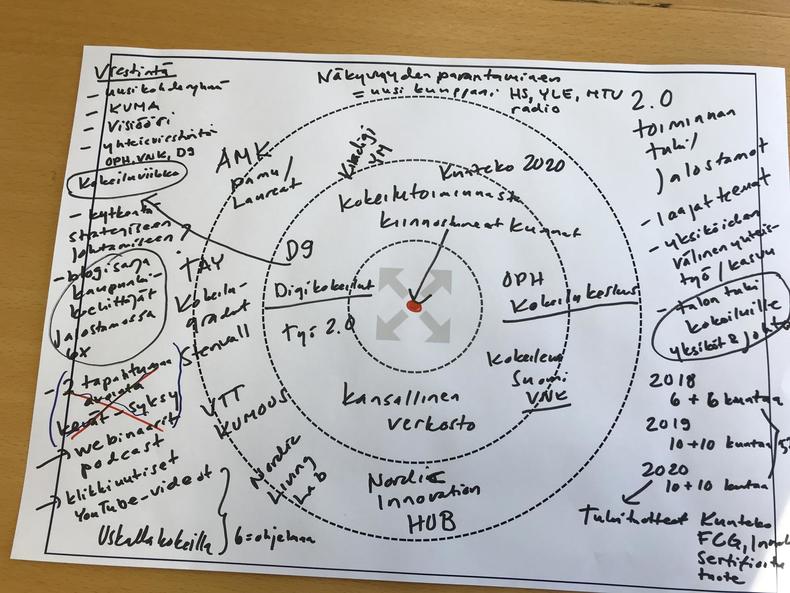 Viestintä
- uusi kohderyhmä
- KUMA
- Visiööri
- yhteisviestintä
OPH, VNK, D9
Kokeiluviikko
- kytkentä
strategiseen
johtamiseen?
- blogisarja
kaupunki-
kehittäjät
Jalostamossa
6x
- 2 tapahtumaa
kevät syksy
webinaarit
podcast
klikkiuutiset
YouTube-videot
Uskalla kokeilla
6=ohjelmaa
Näkyvyyden parantaminen
= uusi kumppani HS, YLE, MTV
radio
AMK
Laureat
Kuntadigi
VM
Kunteko 2020
Kokeilutoiminnasta
kiinnostuneet kunnat
D9
TAY
Kokeilu-
gradut
Stenvall
Digikokeilut
Työ 2.0
OPH
Kokeilukeskus
Kokeileva
Suomi
VNK
Kansallinen
verkosto
VTT
KUMOUS
Nordic
Living
Lab
Nordic
Innovation
HUB
2.0
toiminnan
tuki/
Jalostamot
- laajat teemat
- yksiköiden
välinen yhteis-
työ / kasvu
- talon tuki
kokeiluille
yksiköt & johto
2018
6 + 6 kuntaa
2019
10 + 10 kuntaa
2020
10 + 10 kuntaa
Tukituotteet Kunteko
FCG,
Sertifiointi
tuote